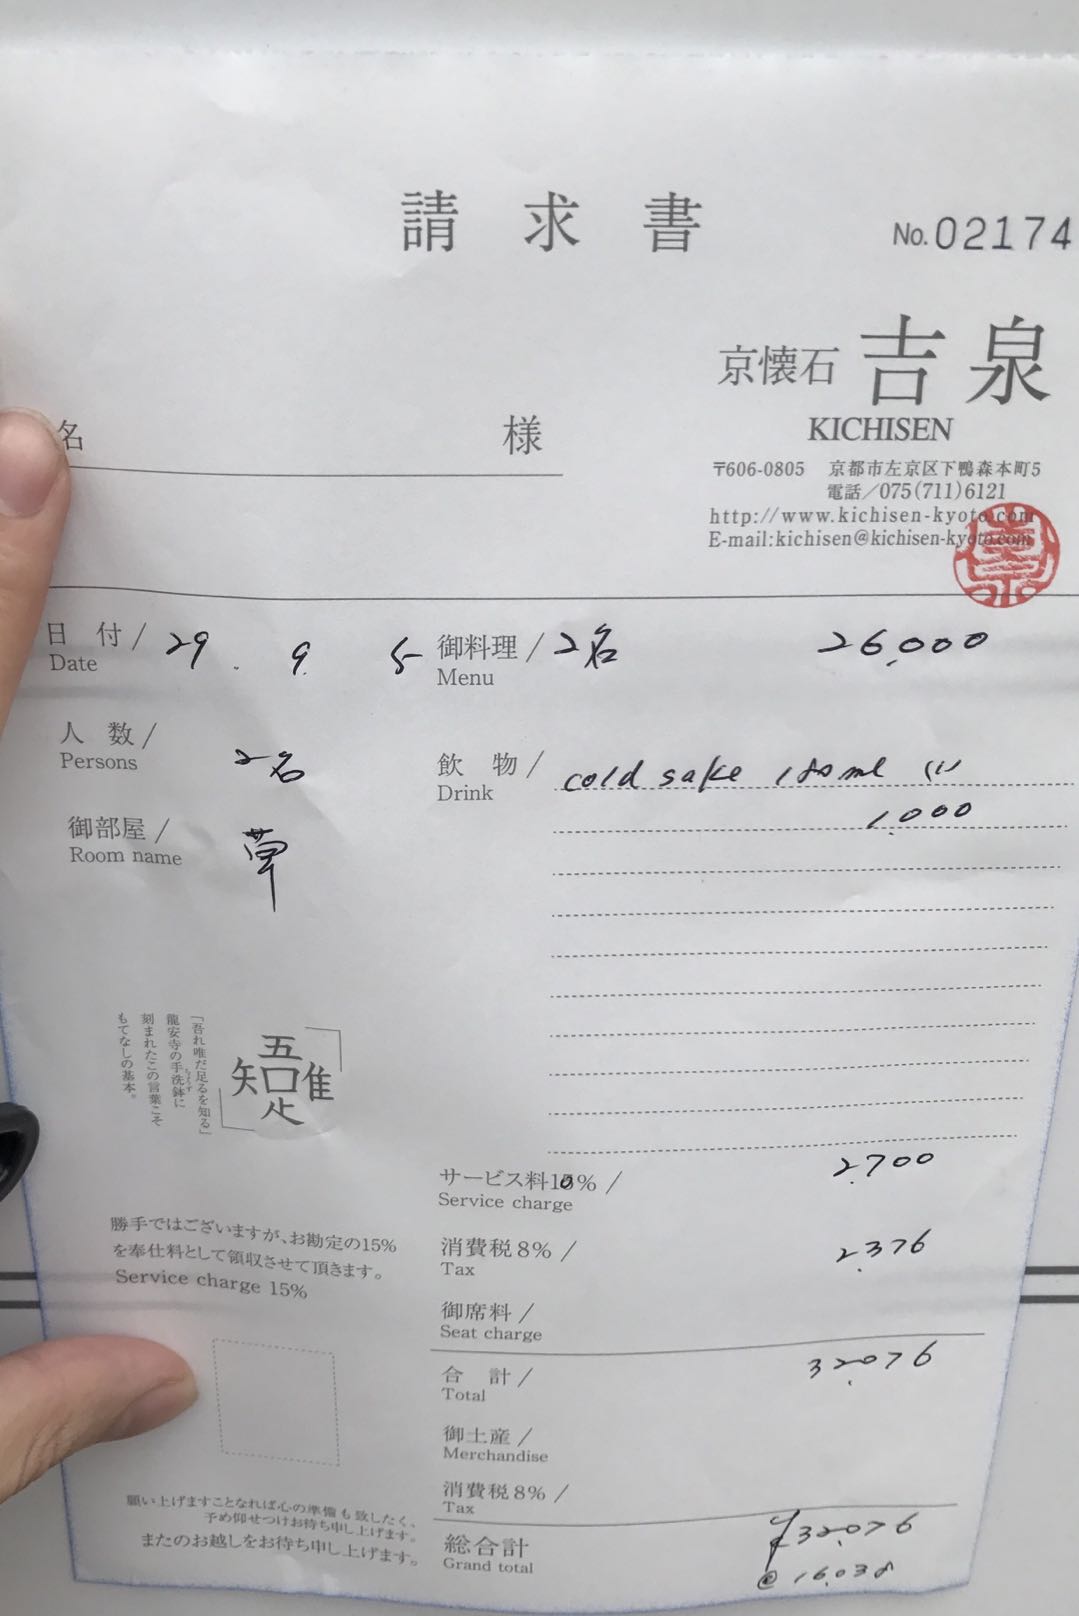 請求書
No.02174
京懐石 吉泉
KICHISEN
〒606-0805 京都市左京区下鴨森本町5
電話／075(711)6121
http://www.kichisen-kyoto.com
E-mail:kichisen@kichisen-kyoto.com
名 様
日付/ 29. 9. 5
Date
人数/ 2名
Persons
御部屋/
Room name
御料理/ 2名 26,000
Menu
飲物/ cold sake 180ml (1)
Drink
1,000
「吾れ唯だ足るを知る」
龍安寺の手洗鉢に
刻まれたこの言葉こそ
もてなしの基本。
吾唯足知
勝手ではございますが、お勘定の15%
を奉仕料として領収させて頂きます。
Service charge 15%
サービス料10%/ 2,700
Service charge
消費税8%/ 2,376
Tax
御席料/
Seat charge
合計/ 32,076
Total
御土産/
Merchandise
消費税8%/
Tax
総合計 ¥32,076
Grand total
@16,038
願い上げますことなれば心の準備も致したく、
予め仰せつけお待ち申し上げます。
またのお越しをお待ち申し上げます。